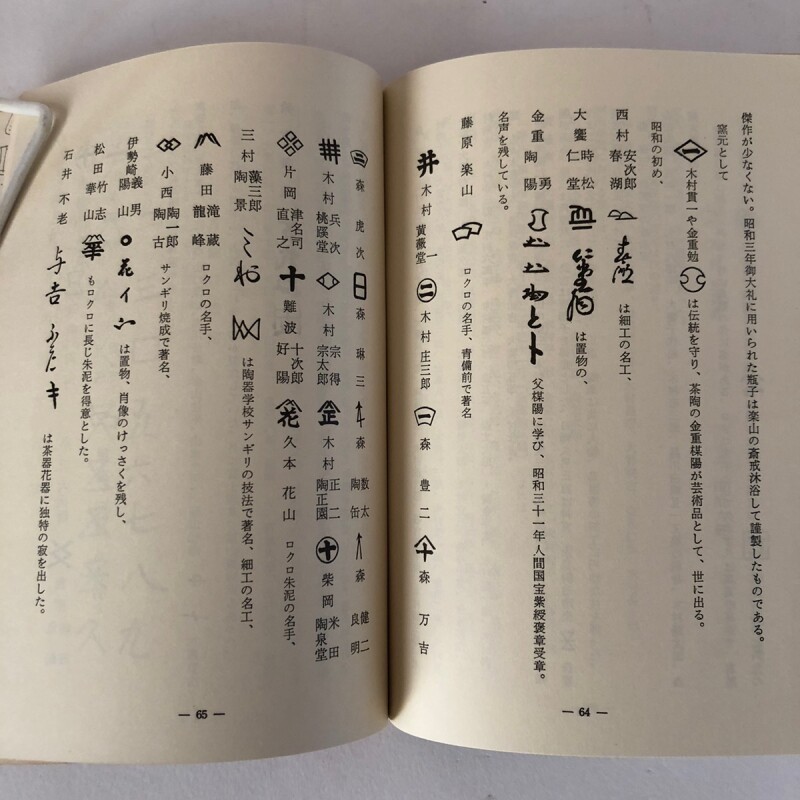 傑作が少なくない。昭和三年御大礼に用いられた瓶子は楽山の斎戒沐浴して謹製したものである。
窯元として
木村貫一や金重勉は伝統を守り、茶陶の金重楳陽が芸術品として、世に出る。
昭和の初め、
西村春湖 安次郎 は細工の名工、
大饗仁堂 時松 は置物の、
金重陶陽 勇 父楳陽に学び、昭和三十一年人間国宝紫綬褒章受章。
名声を残している。
藤原楽山 ロクロの名手、青備前で著名
木村黄薇堂 一 木村庄三郎 森豊二 森万吉
— 64 —
森虎次 森琳三 森陶缶 数太 森良明 健二
木村桃蹊堂 兵次 木村宗太郎 宗得 木村陶正園 正二 柴岡陶泉堂 米田
片岡直之 津名司 難波好陽 十次郎 久本花山 ロクロ朱泥の名手、
三村陶景 藻三郎 は陶器学校サンギリの技法で著名、細工の名工、
藤田龍峰 滝蔵 ロクロの名手、
小西陶古 陶一郎 サンギリ焼成で著名、
伊勢崎陽山 義男 は置物、肖像のけっさくを残し、
松田華山 竹志 もロクロに長じ朱泥を得意とした。
石井不老 は茶器花器に独特の寂を出した。
— 65 —